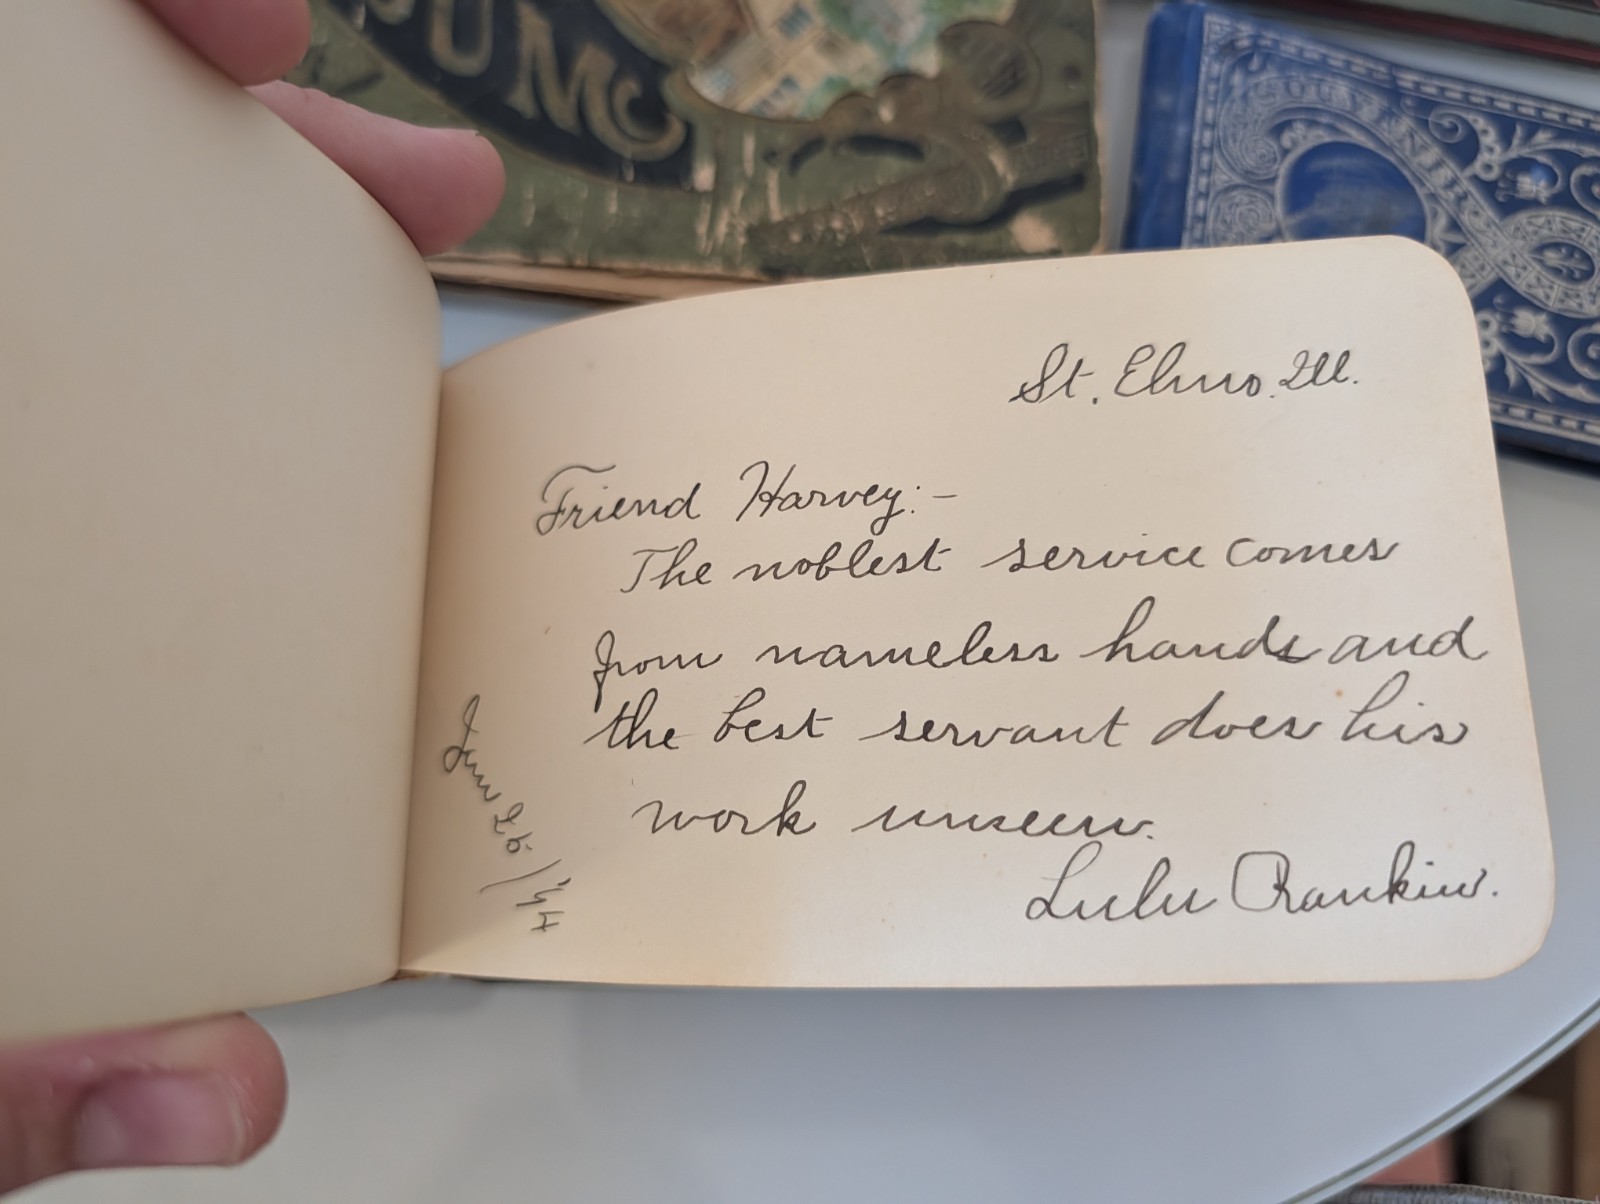 UM
SOUVENIR
St. Elmo. Ill.
Friend Harvey:-
The noblest service comes
from nameless hands and
the best servant does his
work unseen.
Lulu Rankin.